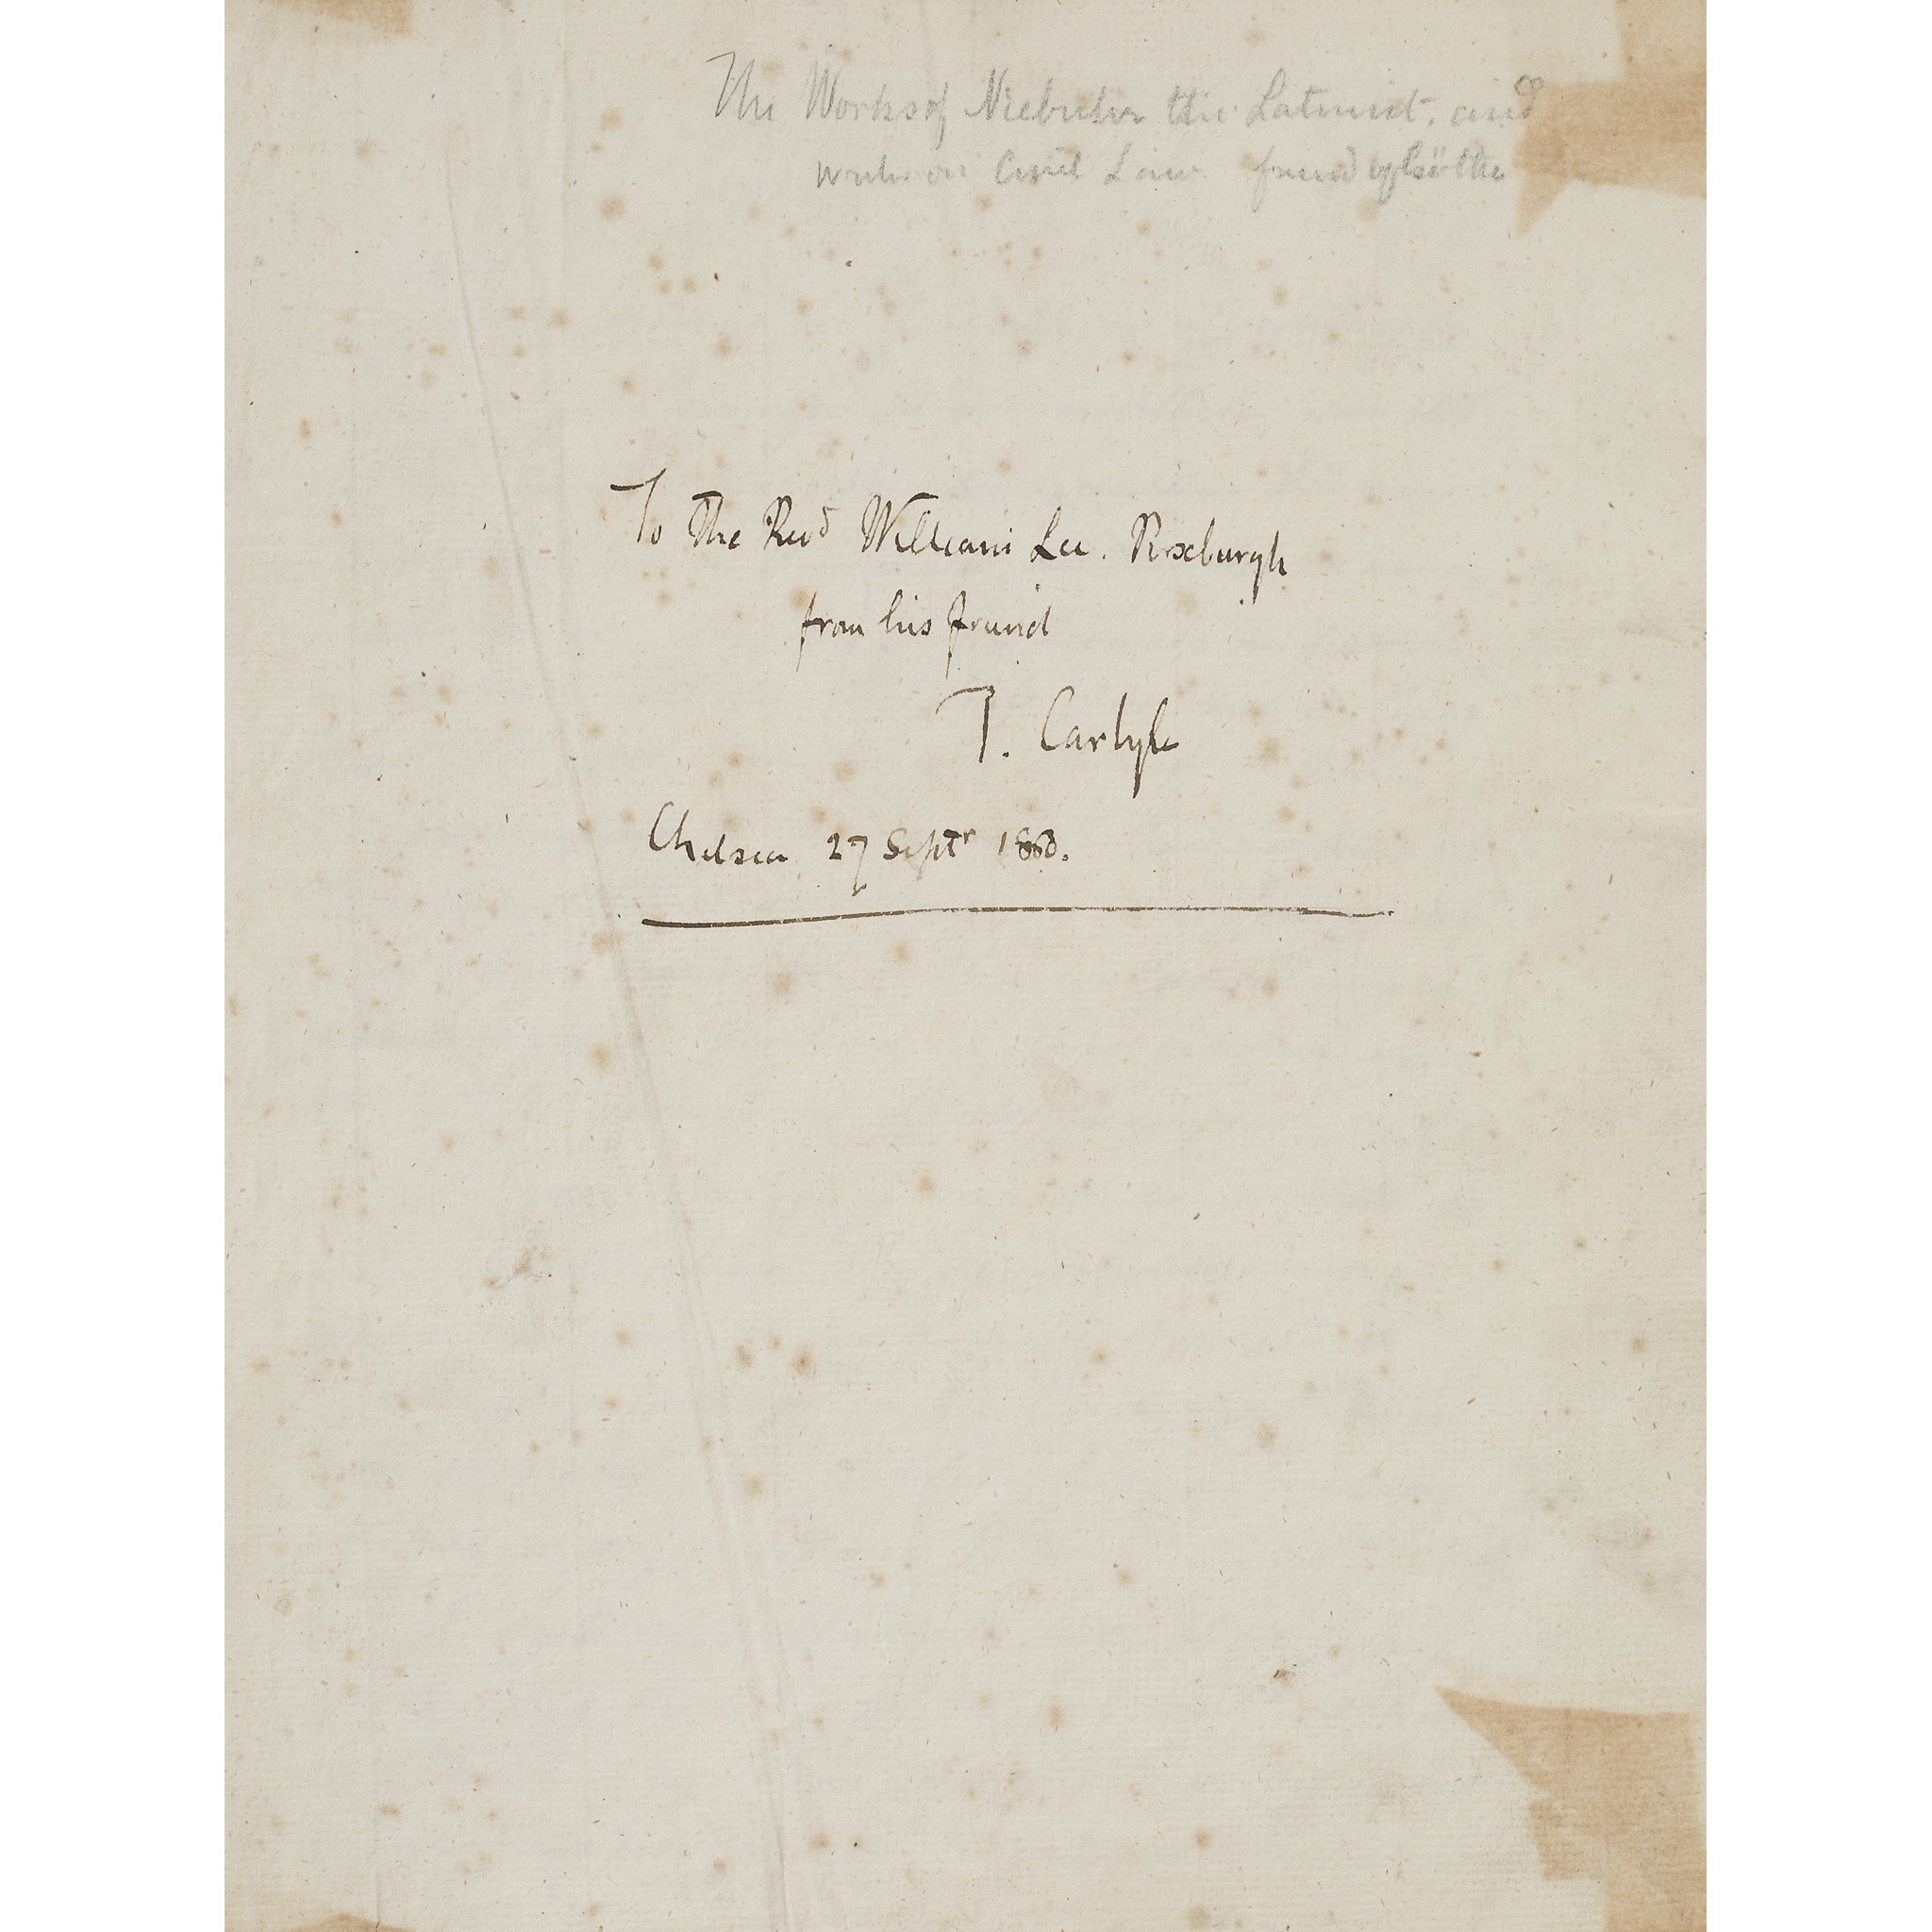 The Works of Niebuhr the Latinist, and
writer on Civil Law friend of Göthe
To The Revd William Lee. Roxburgh
from his friend
T. Carlyle
Chelsea 27 Septr 1860.